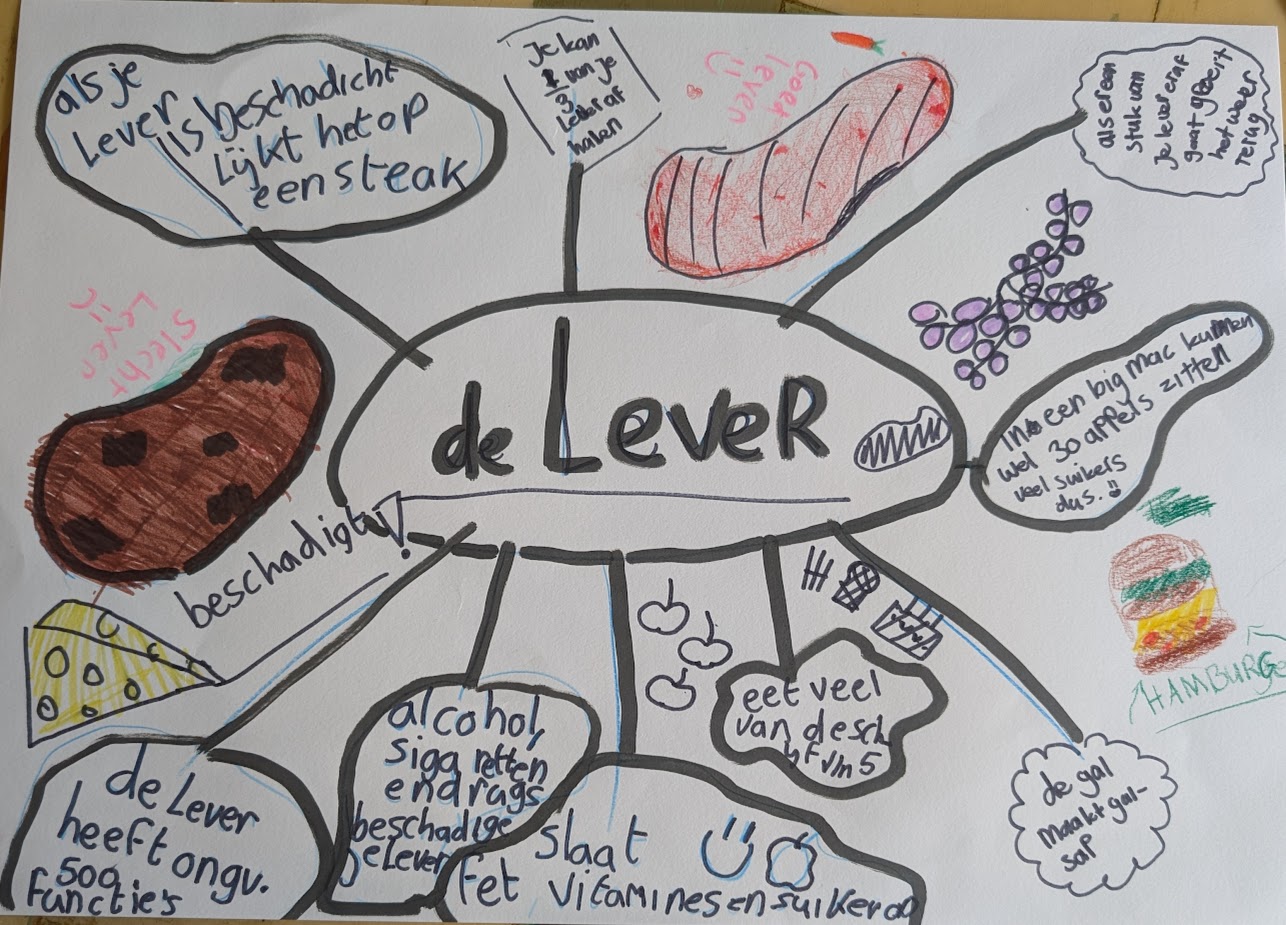 als je
Lever is beschadicht
Lijkt het op
een steak
Je kan
1/3 van je
Lever af
halen
Goed
leven
als er een
stuk van
je lever af
gaat groeit
het weer
terug
Slecht
Leven
de Lever
In een big mac kunnen
wel 30 appels zitten
veel suikers
dus.
beschadigt!
HAMBURGE
eet veel
van de sch
yf v/n 5
alcohol,
sigaretten
en drugs
beschadige
je Lever
de gal
maakt gal-
sap
de Lever
heeft ongv.
500
functie's
slaat
fet vitamines en suiker op